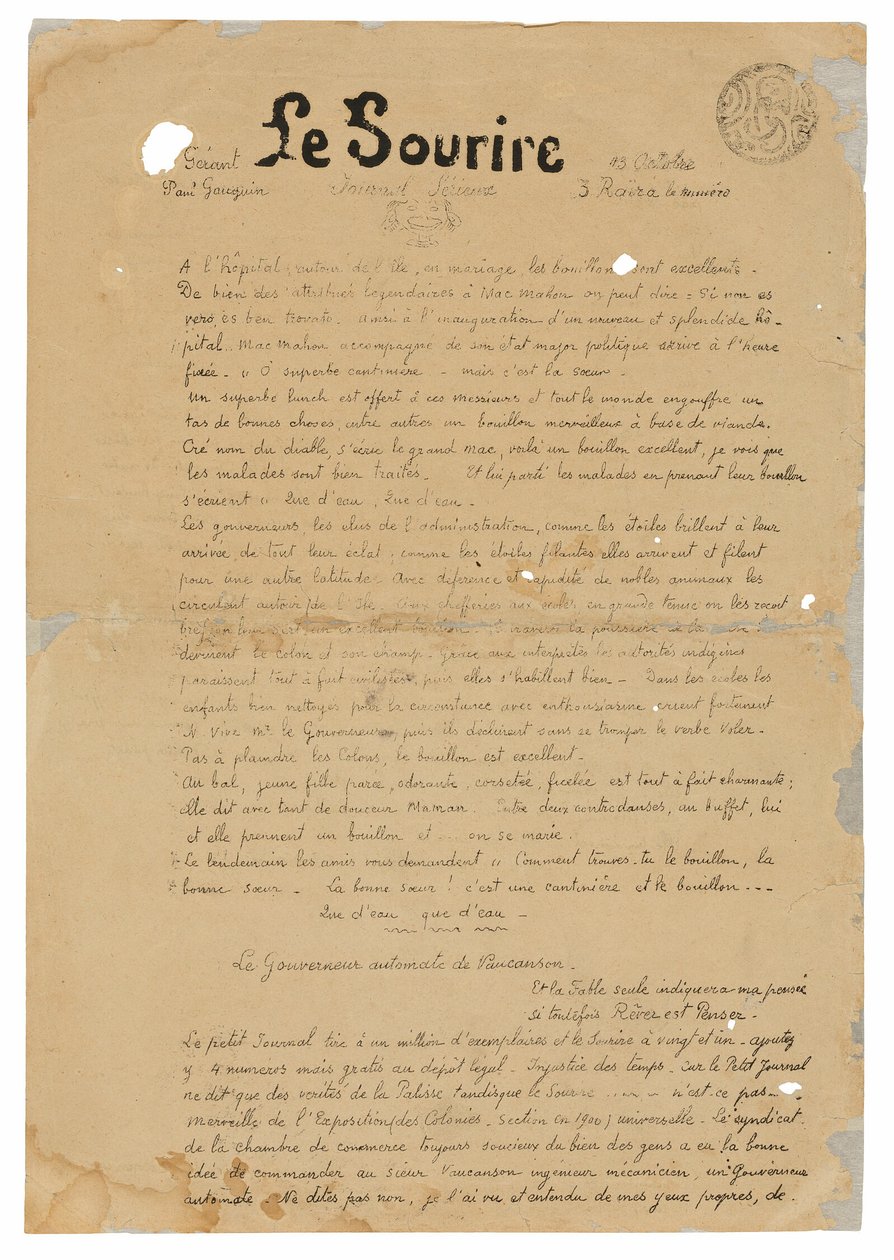 Le Sourire
Gérant
13 Octobre
Paul Gauguin
Journal Sérieux
3 Raïra le numéro
A l'hôpital, autour de l'île, en mariage, les bouillons sont excellents -
De bien des attributs légendaires à Mac Mahon on peut dire = Si non es
vero, es ben trovato. ainsi à l'inauguration d'un nouveau et splendide hô-
pital. Mac Mahon accompagne de son état major politique arrive à l'heure
fixée. - " O superbe cantinière - mais c'est la sœur -
un superbe lunch est offert à ces messieurs et tout le monde engouffre un
tas de bonnes choses, entre autres un bouillon merveilleux à base de viande.
Cré nom du diable, s'écrie le grand Mac, voilà un bouillon excellent, je vois que
les malades sont bien traités. Et lui parti les malades en prenant leur bouillon
s'écrient " Que d'eau, Que d'eau -
Les gouverneurs, les élus de l'administration, comme les étoiles brillent à leur
arrivée de tout leur éclat; comme les étoiles filantes elles arrivent et filent
pour une autre latitude. Avec déférence et rapidité de nobles animaux les
circulent autour de l'île. chefferies aux écoles, en grande tenue on les reçoit
bref on leur sert un excellent bouillon. travers la poussière de la
devinent le colon et son champ. Grâce aux interprètes les autorités indigènes
paraissent tout à fait civilisées, puis elles s'habillent bien - Dans les écoles les
enfants bien nettoyés pour la circonstance avec enthousiasme crient fortement
Vive Mr le Gouverneur, puis ils déclinent sans se tromper le verbe Voler.
Pas à plaindre les Colons, le bouillon est excellent -
Au bal, jeune fille parée, odorante, corsetée, ficelée est tout à fait charmante;
elle dit avec tant de douceur Maman. Entre deux contredanses, au buffet, lui
et elle prennent un bouillon et ... on se marie.
Le lendemain les amis vous demandent " Comment trouves-tu le bouillon, la
bonne sœur - La bonne sœur ! c'est une cantinière et le bouillon ---
Que d'eau que d'eau -
Le Gouverneur automate de Vaucanson -
Et la Fable seule indiquera ma pensée
si toutefois Rêver est Penser -
Le petit Journal tire à un million d'exemplaires et le Sourire à vingt et un - ajoutez
y 4 numéros mais gratis au dépôt légal - Injustice des temps - car le Petit Journal
ne dit que des verités de la Palisse tandisque le Sourire ... n'est-ce pas -
merveille de l'Exposition (des Colonies - Section en 1900) universelle - Le syndicat
de la chambre de commerce toujours soucieux du bien des gens a eu la bonne
idée de commander au sieur Vaucanson ingénieur mécanicien, un Gouverneur
automate. Ne dites pas non, je l'ai vu et entendu de mes yeux propres, de